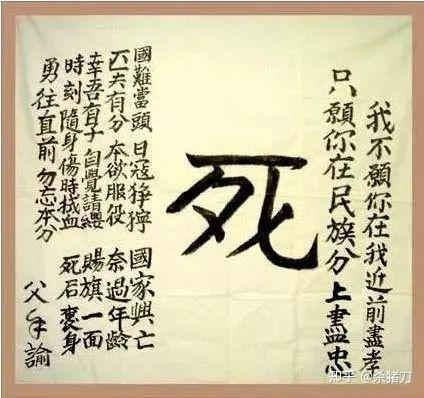 我不願你在我近前盡孝
只願你在民族分上盡忠
死
國難當頭 日寇猙獰 國家興亡
匹夫有分 本欲服役 奈過年齡
幸吾有子 自覺請纓 賜旗一面
時刻隨身 傷時拭血 死后裹身
勇往直前 勿忘本分
父手諭
知乎 @杀猪刀